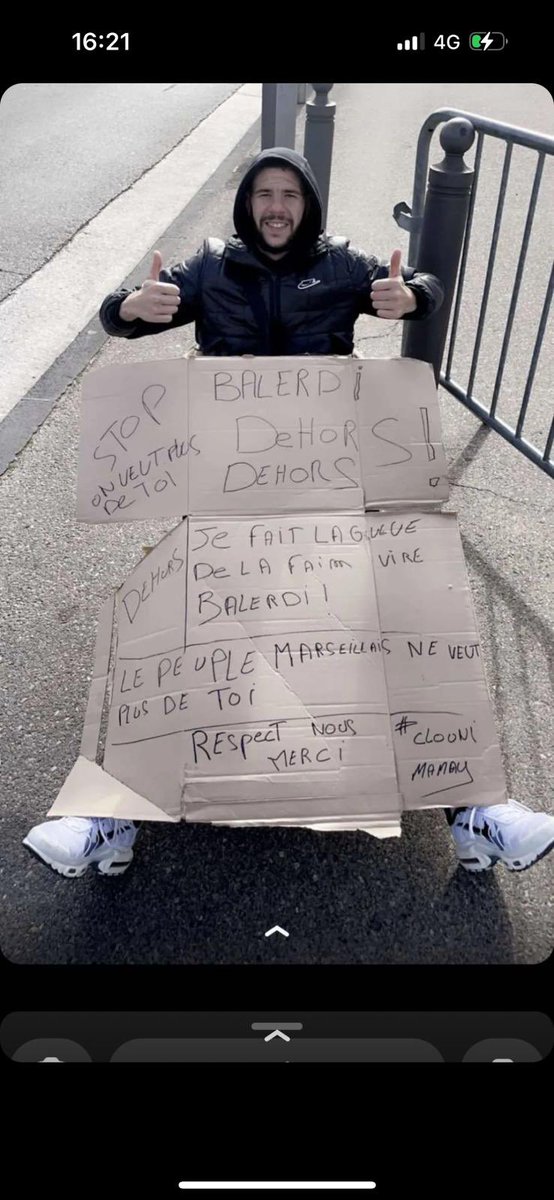 16:21
4G
STOP
ON VEUT PLUS
DE TOI
BALERDI
DEHORS!
DEHORS
DEHORS
JE FAIT LA GUEUE
DE LA FAIM VIRE
BALERDI!
LE PEUPLE MARSEILLAIS NE VEUT
PLUS DE TOI
RESPECT NOUS
MERCI
#CLOUNI
MAMAY